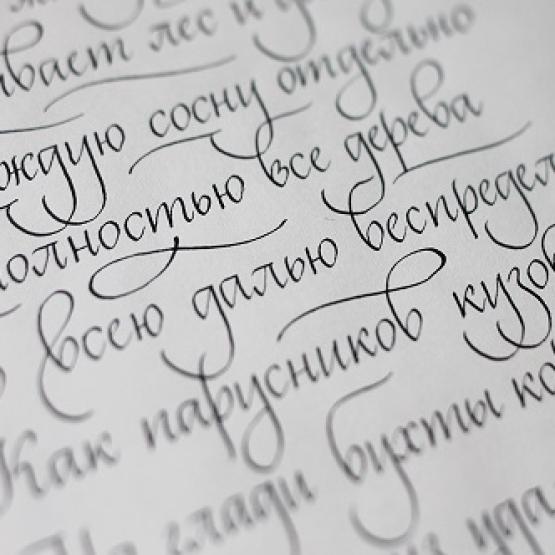 вает лес и
ждую сосну отдельно
олностью все дерева
всею далью беспредел
Как парусников кузов
На глади бухты ко
и уда